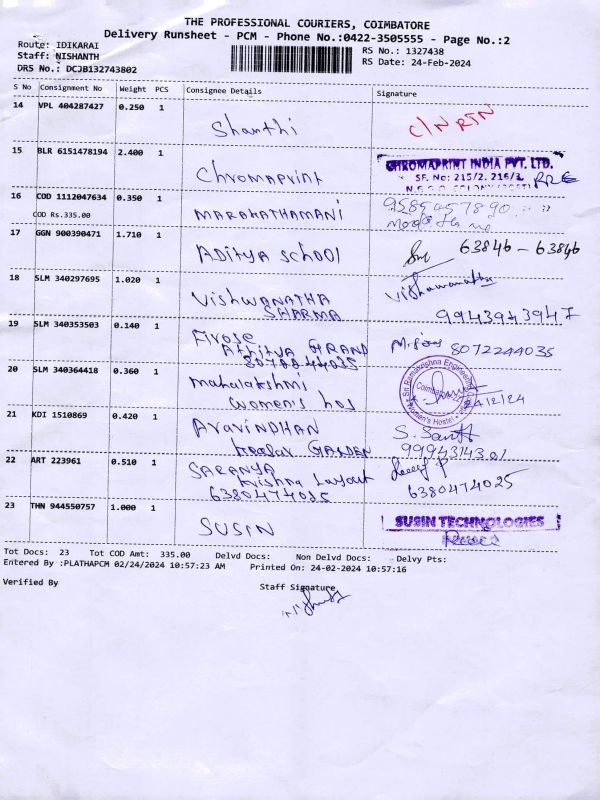 THE PROFESSIONAL COURIERS, COIMBATORE
Delivery Runsheet - PCM - Phone No.:0422-3505555 - Page No.:2
Route: IDIKARAI
RS No.: 1327438
Staff: NISHANTH
RS Date: 24-Feb-2024
DRS No.: DCJB132743802
S No Consignment No Weight PCS Consignee Details Signature
14 VPL 404287427 0.250 1 Shanthi C/N RTN
15 BLR 6151478194 2.400 1 Chromaprint CHROMAPRINT INDIA PVT. LTD.
SF. No: 215/2, 216/3,
16 COD 1112047634 0.350 1 MARAKATHAMANI
COD Rs.335.00
17 GGN 900390471 1.710 1 ADITYA School 63846 - 63846
18 SLM 340297695 1.020 1 VISHWANATHA SHARMA Vishwanatha
9944394394 7
19 SLM 340353503 0.140 1 Firose
GRAND
8072244035
20 SLM 340364418 0.360 1 mahalakshmi
women's hos
Sri Ramakrishna Engineering
Coimbatore
Women's Hostel
21 KDI 1510869 0.420 1 Aravindhan
GARDEN
22 ART 223961 0.510 1 SARANYA
Krishna Layout
6380474025 6380474025
23 THN 944550757 1.000 1 SUSIN SUSIN TECHNOLOGIES
Tot Docs: 23 Tot COD Amt: 335.00 Delvd Docs: Non Delvd Docs: Delvy Pts:
Entered By :PLATHAPCM 02/24/2024 10:57:23 AM Printed On: 24-02-2024 10:57:16
Verified By
Staff Signature